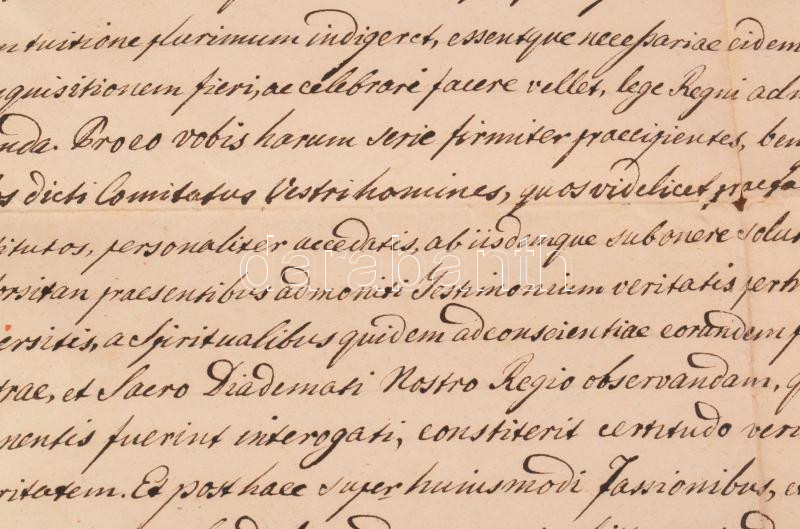 ntuitione plurimum indigeret, essentque necessariae eidem
nquisitionem fieri, ac celebrari facere vellet, lege Regni adm
nda. Proeo vobis harum serie firmiter praecipientes, ben
os dicti Comitatus Vestri homines, quos videlicet praefa
titutos, personaliter accedatis, ab iisdemque sub onere solut
forsitan praesentibus admoniti Testimonium veritatis perh
ersitis, a Spiritualibus quidem ad conscientiae eorundem p
trae, et Sacro Diademati Nostro Regio observandam, q
nentis fuerint interogati, constiterit certitudo veri
ritatem. Et post haec super huiusmodi Fassionibus, et
darabanth